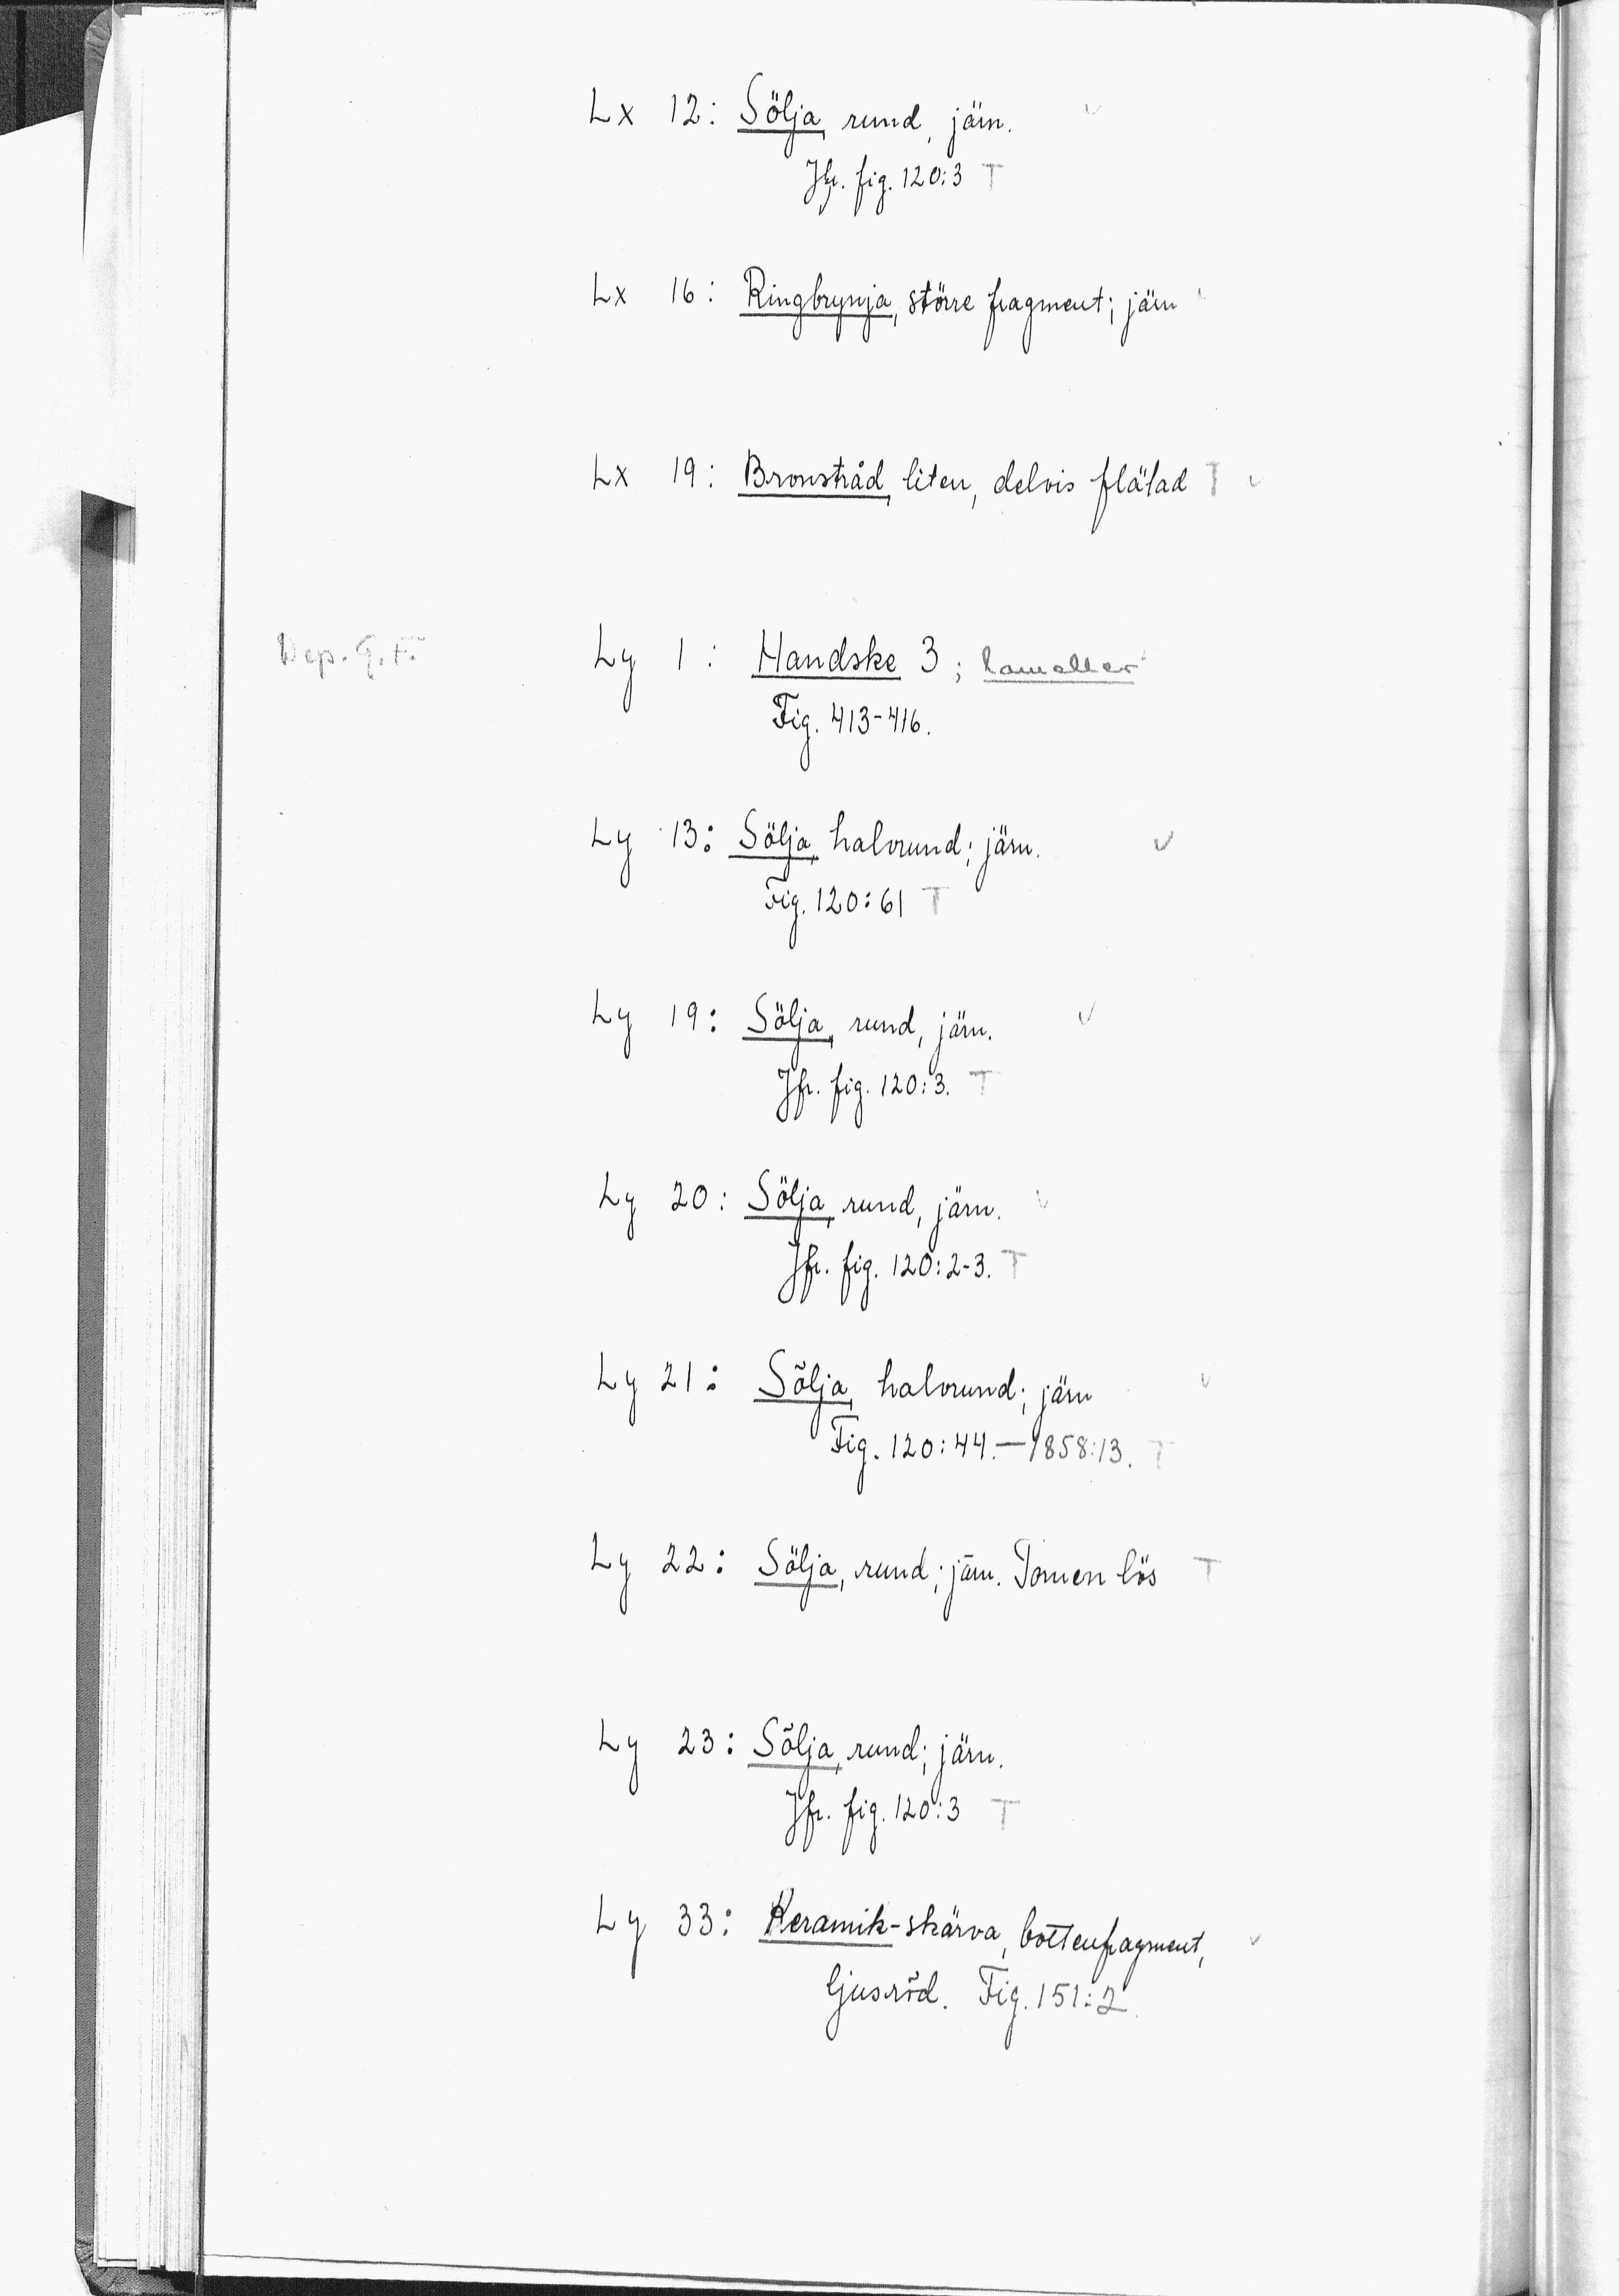 Lx 12: Sölja, rund, järn. ✓
Jfr. fig. 120:3 T
Lx 16: Ringbrynja, större fragment; järn
Lx 19: Bronstråd, liten, delvis flätad T ✓
Dep. G.F.
Ly 1: Handske 3; lameller
Fig. 413-416.
Ly 13: Sölja, halvrund; järn. ✓
Fig. 120:61 T
Ly 19: Sölja, rund, järn. ✓
Jfr. fig. 120:3. T
Ly 20: Sölja, rund, järn. ✓
Jfr. fig. 120:2-3. T
Ly 21: Sölja, halvrund; järn ✓
Fig. 120:44.—1858:13. T
Ly 22: Sölja, rund; järn. Tornen lös T
Ly 23: Sölja, rund; järn.
Jfr. fig. 120:3 T
Ly 33: Keramik-skärva, bottenfragment, ✓
ljusröd. Fig. 151:2.